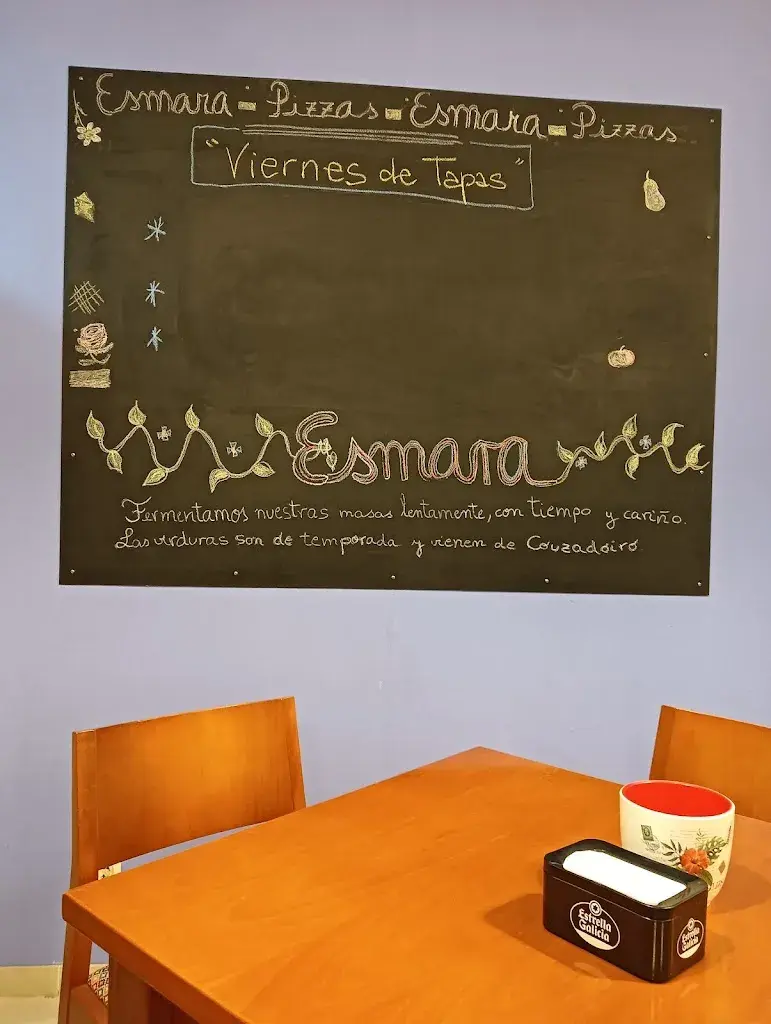 Esmara - Pizzas - Esmara - Pizzas
"Viernes de Tapas"
Esmara
Fermentamos nuestras masas lentamente, con tiempo y cariño.
Las verduras son de temporada y vienen de Couzadoiro.
Estrella
Galicia
Estrella
Galicia